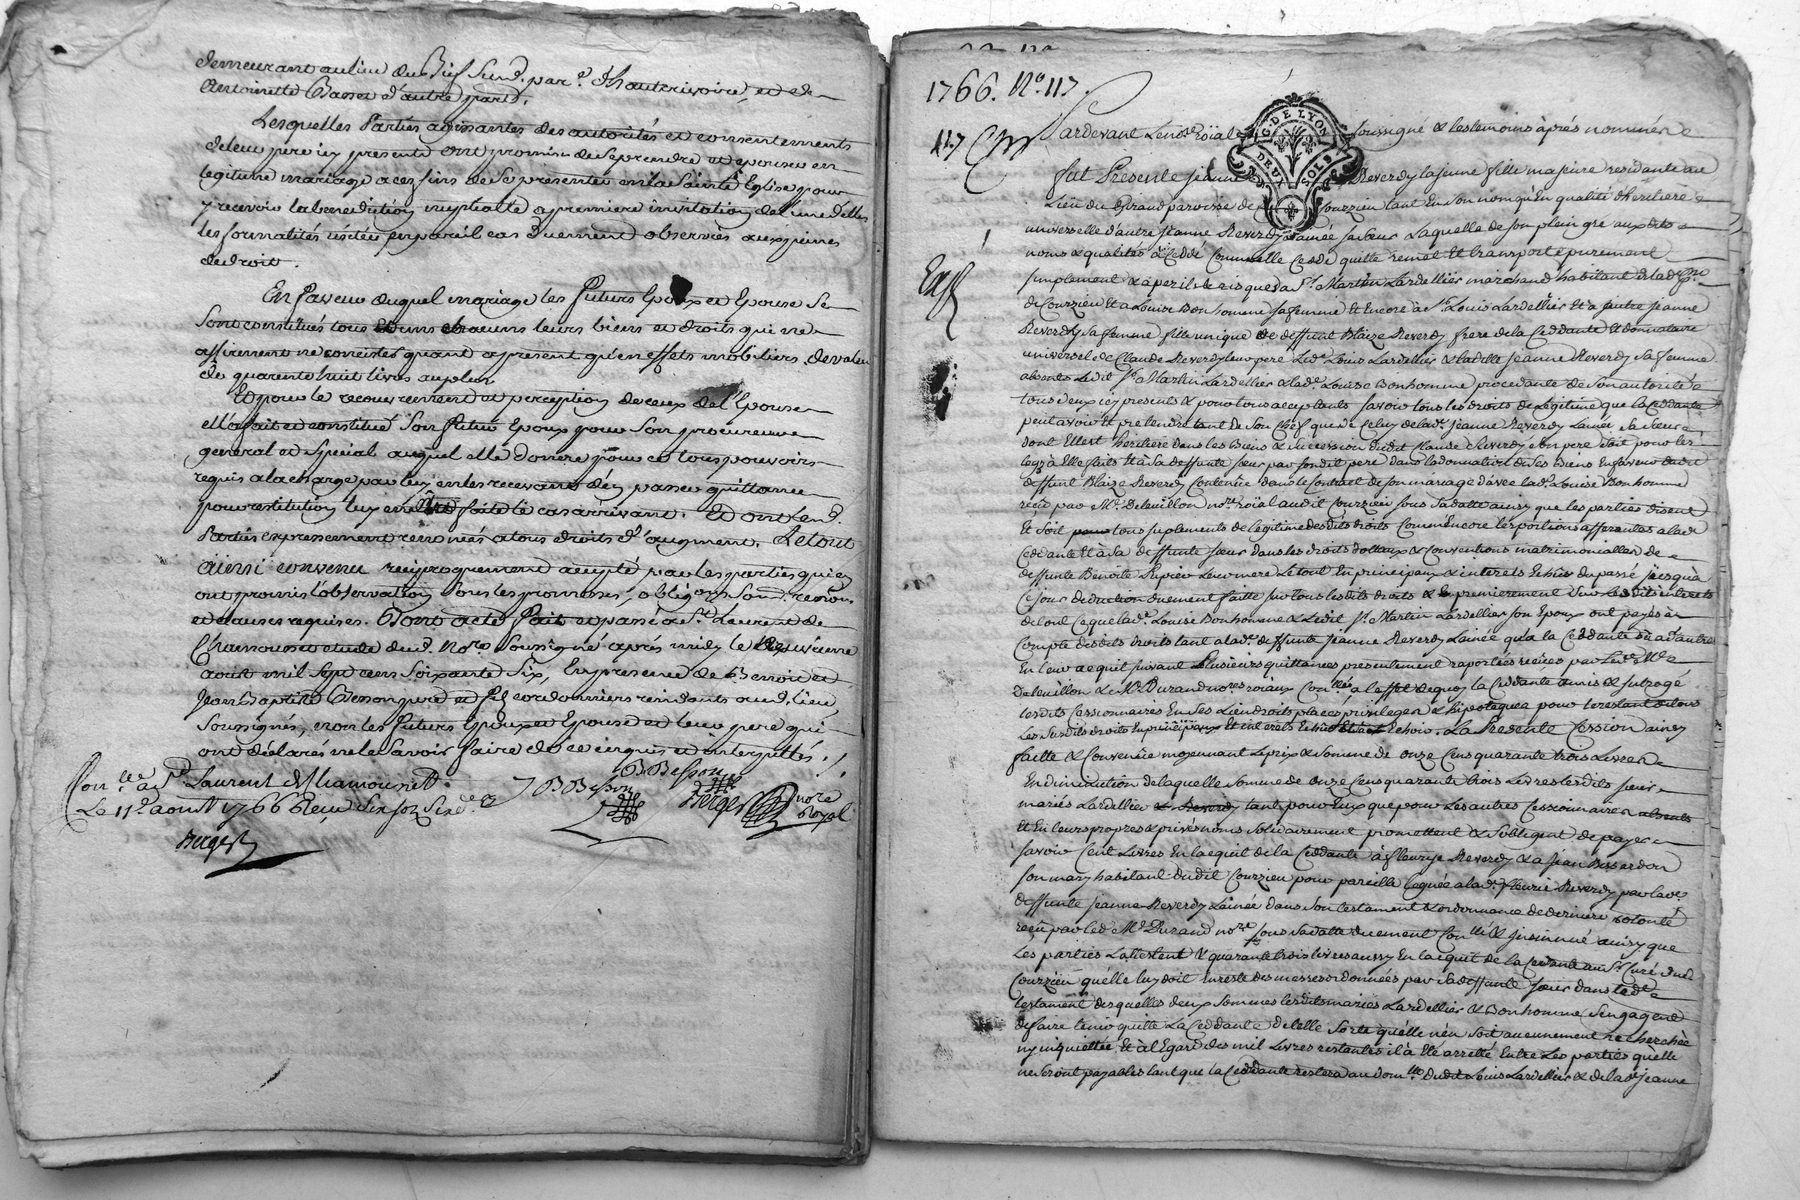 demeurant au lieu du Bief sud. par.e d'hauterivoire, et de
Antoinette Basset d'autre part.
Lesquelles Parties agissantes des autorités et consentements
de leur pere icy presents ont promis de se prendre et epouser en
legitime mariage a ces fins de se presenter en la Sainte Eglise pour
y recevoir la benediction nuptialle a premiere invitation de l'une d'elles
les formalités usitées en pareil cas duement observées aux peines
de droit.
En faveur duquel mariage les futurs Epoux et Epouse se
sont constitués tous et uns chacuns leurs biens et droits qui ne
affirment ne consister quant a present qu'en effets mobiliers de valeur
de quarente huit livres au plus
Et pour le recouvrement et perception de ceux de l'Epouse
elle a fait et constitué son futur Epoux pour son procureur
general et special auquel elle donne pour ce tous pouvoirs
requis a la charge par luy en les recevant d'en passer quittance
pour restitution luy en être faite le cas arrivant. Et ont lesd.
Parties expressement renoncés a tous droits d'augment. Le tout
ainsi convenu reciproquement accepté par les parties qui en
ont promis l'observation sous les promesses, obligons. soum. renons
et clauses requises. Dont acte fait et passé a St. Laurent de
Chamousset etude dud. Nore. soussigné après midy le
aout mil sept cens soixante six, en presence de Benoit et
Jean Baptiste Besson pere et fils cordonniers residents aud. lieu,
soussignés, non les futurs Epoux et Epouse et leur pere qui
ont déclarés ne le savoir faire de ce enquis et interpellés.
Con.lée a St. Laurent de Chamousset
Le 11e aout 1766 Reçu dix sols six de.
Berger
J B Besson
B Besson
Berger nore royal
1766. No. 117.
117
Pardevant Le nore roïal soussigné & les temoins après nommés
G. DE LYON
DEUX SOLS
fut Presente Jeanne Reverdy la jeune fille majeure residante au
Lieu du Girand paroisse de Courzieu tant En son nom qu'En qualité d'heritiere
universelle d'autre Jeanne Reverdy L'ainée sa sœur Laquelle de son plein gré aux dits
noms & qualités à Ceddé Comme Elle Cede quitte remet Et transporte purement
Exp.
simplement & à peril & risque a Sr. Martin Lardellier marchand habitant de lad. par.
de Courzieu Et a Louise Bonhomme sa femme & Encore à Sr. Louis Lardellier Et a autre Jeanne
Reverdy sa femme fille unique de deffunt Blaize Reverdy frere de la Ceddante Et donnataire
universel de Claude Reverdy leur pere Led. Louis Lardellier & ladite Jeanne Reverdy sa femme
absents Ledit Sr. Martin Lardellier & lad. Louise Bonhomme procedante de son autorité
tous deux icy presents & pour tous acceptants savoir tous les droits de Legitime que la Ceddante
peut avoir Et pretendre tant de son Chef que de Celuy de lad. Jeanne Reverdy L'ainée sa sœur
dont Elle est heritiere dans les Biens & succession dudit Claude Reverdy son pere soit pour les
legs à Elle faits Et à sa deffunte sœur par son dit pere dans la donnation de ses Biens En faveur dudit
deffunt Blaize Reverdy Contenüe dans le Contract de son mariage d'avec lad. Louise Bonhomme
reçu par Me. Delevillon nore. roïal audit Courzieu sous sa datte ainsy que les parties disent
Et soit pour tous suplements de legitime desdits droits Comm'Encore les portions afferantes a lad.
Ceddante Et à sa deffunte sœur dans les droits dottaux & conventions matrimonialles de
deffunte Benoite Rupier Leur mere Le tout En principaux & interets Echus du passé jusqu'à
Ce jour deduction duement faitte sur tous les dits droits & premierement sur Lesdits interets
de tout Ce que lad. Louise Bonhomme & Ledit Sr. Martin Lardellier son Epoux ont payés à
Compte desdits droits tant a lad. deffunte Jeanne Reverdy L'ainée qu'a la Ceddante ou a d'autres
En leur acquit suivant Plusieurs quittances presentement raportées reçües par Led. Me.
Delevillon & Me Durand nores royaux Con.llés à l'effet de quoy la Ceddante a mis & subrogé
Lesdits Cessionnaires En ses Lieu droits places privileges & hipoteques pour le restant de tous
Les susdits droits En principaux Et interets Echus Et à Echoir. La Presente Cession ainsy
faitte & Convenüe moyennant Le prix & somme de onze Cens quarante trois Livres
En diminution de laquelle somme de onze Cens quarante trois Livres lesdits sieur
mariés Lardellier tant pour Eux que pour Les autres Cessionnaires absents
Et En leurs propres & privés noms solidairement promettent & s'obligent de payer
savoir Cent Livres En l'acquit de la Ceddante à fleurye Reverdy & a Jean Bissardon
son mary habitant dudit Courzieu pour pareille Leguée a lad. fleurie Reverdy par lad.
deffunte Jeanne Reverdy L'ainée dans son testament & ordonnance de derniere volonté
reçu par led. Me. Durand nore. sous sa datte duement Con.llé & Insinué ainsy que
Les parties L'attestent & quarante trois livres aussy En l'acquit de la Cedante au Sr. Curé dud.
Courzieu qu'elle luy doit En reste des messes ordonnées par sa deffunte sœur dans led.
testament desquelles deux sommes lesdits mariés Lardellier & Bonhomme s'engagent
de faire tenir quitte La Ceddante de telle sorte qu'elle n'en soit aucunement recherchée
ny inquiettée Et à l'Egard des mil Livres restantes il à Eté arretté Entre Les parties qu'elle
ne seront payables tant que la Ceddante restera au dom.lle dudit Louis Lardellier & de lad. Jeanne